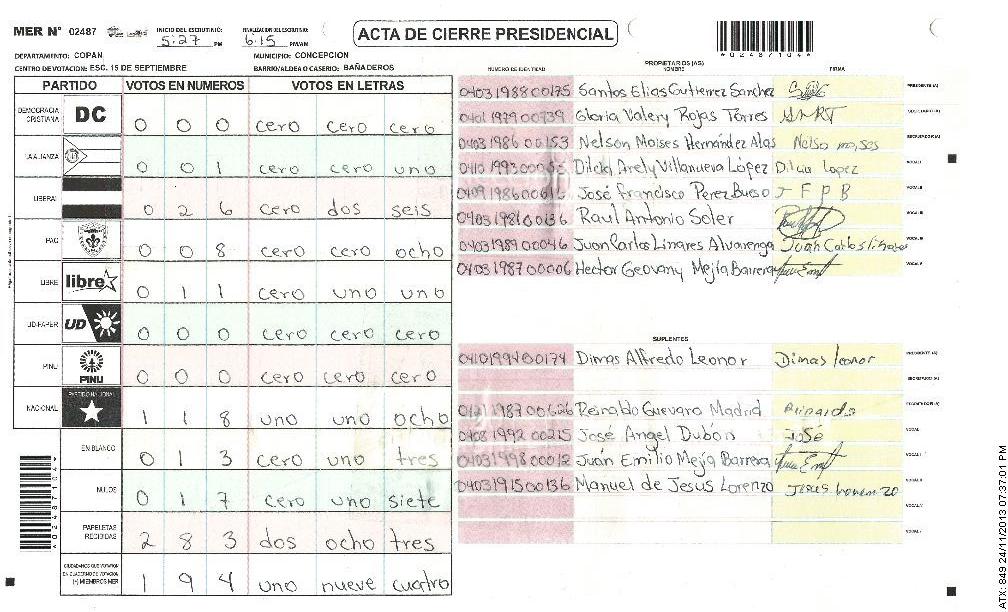 MER Nº 02487
INICIO DEL ESCRUTINIO: 5:27 PM
FINALIZACION DEL ESCRUTINIO: 6:15 PM/AM
ACTA DE CIERRE PRESIDENCIAL
*02487104*
DEPARTAMENTO: COPAN MUNICIPIO: CONCEPCION
CENTRO DE VOTACION: ESC. 15 DE SEPTIEMBRE BARRIO/ALDEA O CASERIO: BAÑADEROS
PARTIDO VOTOS EN NUMEROS VOTOS EN LETRAS
DEMOCRACIA CRISTIANA DC 0 0 0 cero cero cero
LA ALIANZA 0 0 1 cero cero uno
LIBERAL 0 2 6 cero dos seis
PAC 0 0 8 cero cero ocho
LIBRE libre 0 1 1 cero uno uno
UD-FAPER UD 0 0 0 cero cero cero
PINU PINU 0 0 0 cero cero cero
NACIONAL PARTIDO NACIONAL 1 1 8 uno uno ocho
EN BLANCO 0 1 3 cero uno tres
NULOS 0 1 7 cero uno siete
PAPELETAS RECIBIDAS 2 8 3 dos ocho tres
CIUDADANOS QUE VOTARON EN CUADERNO DE VOTACION (+) MIEMBROS MER 1 9 4 uno nueve cuatro
*02487104*
PROPIETARIOS (AS)
NUMERO DE IDENTIDAD NOMBRE FIRMA
0403198800175 Santos Elias Gutierrez Sanchez PRESIDENTE (A)
0401197900739 Gloria Valery Rojas Torres
0403198600153 Nelson Moises Hernández Alas Nelso moises
Dilcia Arely Villanueva López Dilcia Lopez VOCAL I
José Francisco Perez Bueso J F P B VOCAL II
0403198100136 Raul Antonio Soler VOCAL III
0403198900046 Juan Carlos Linares Alvarenga Juan Carlos linares
0403198700006 Hector Geovany Mejía Barrera VOCAL V
SUPLENTES
0410199400174 Dimas Alfredo Leonor Dimas leonor PRESIDENTE (A)
SECRETARIO (A)
Reinaldo Guevara Madrid
0408199200215 José Angel Dubón José
0403199800012 Juán Emilio Mejía Barrera
0403191500136 Manuel de Jesus Lorenzo Jesus
ATX: 849 24/11/2013 07:37:01 PM